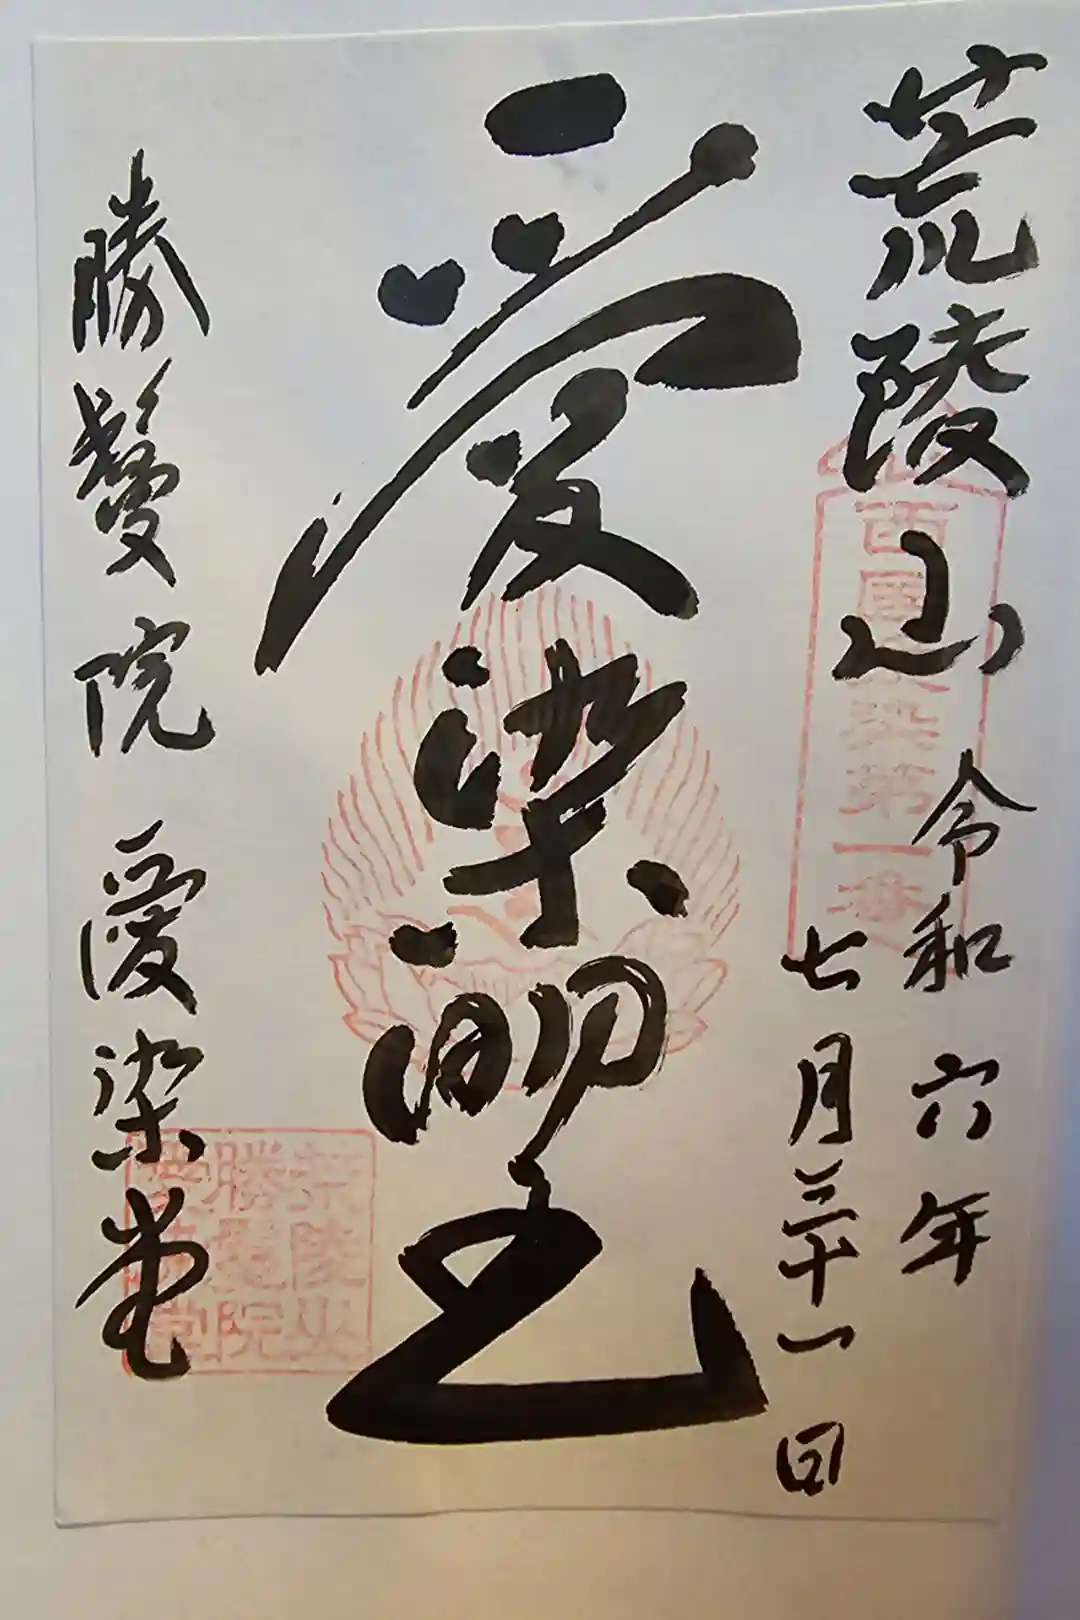 荒陵山
令和六年
七月三十一日
西国愛染第一番
愛染明王
勝鬘院 愛染堂
荒陵山
勝鬘院
愛染堂